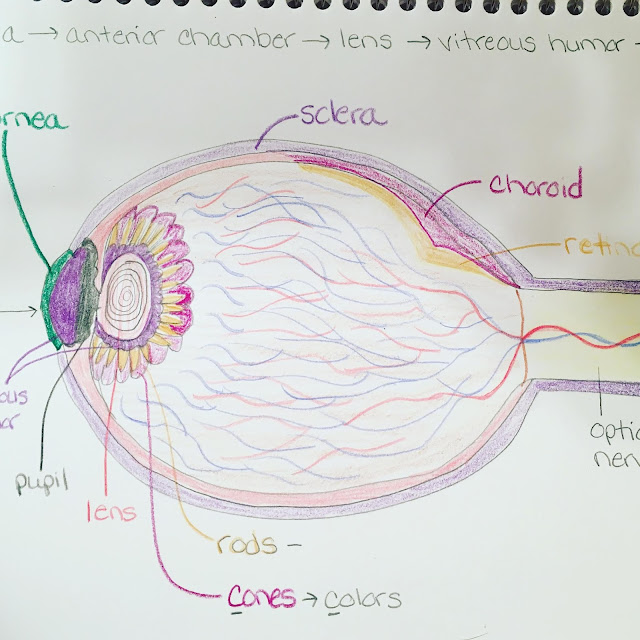 a → anterior chamber → lens → vitreous humor →
rnea
sclera
choroid
retina
ous
or
pupil
lens
optic
nerv
rods -
cones → colors